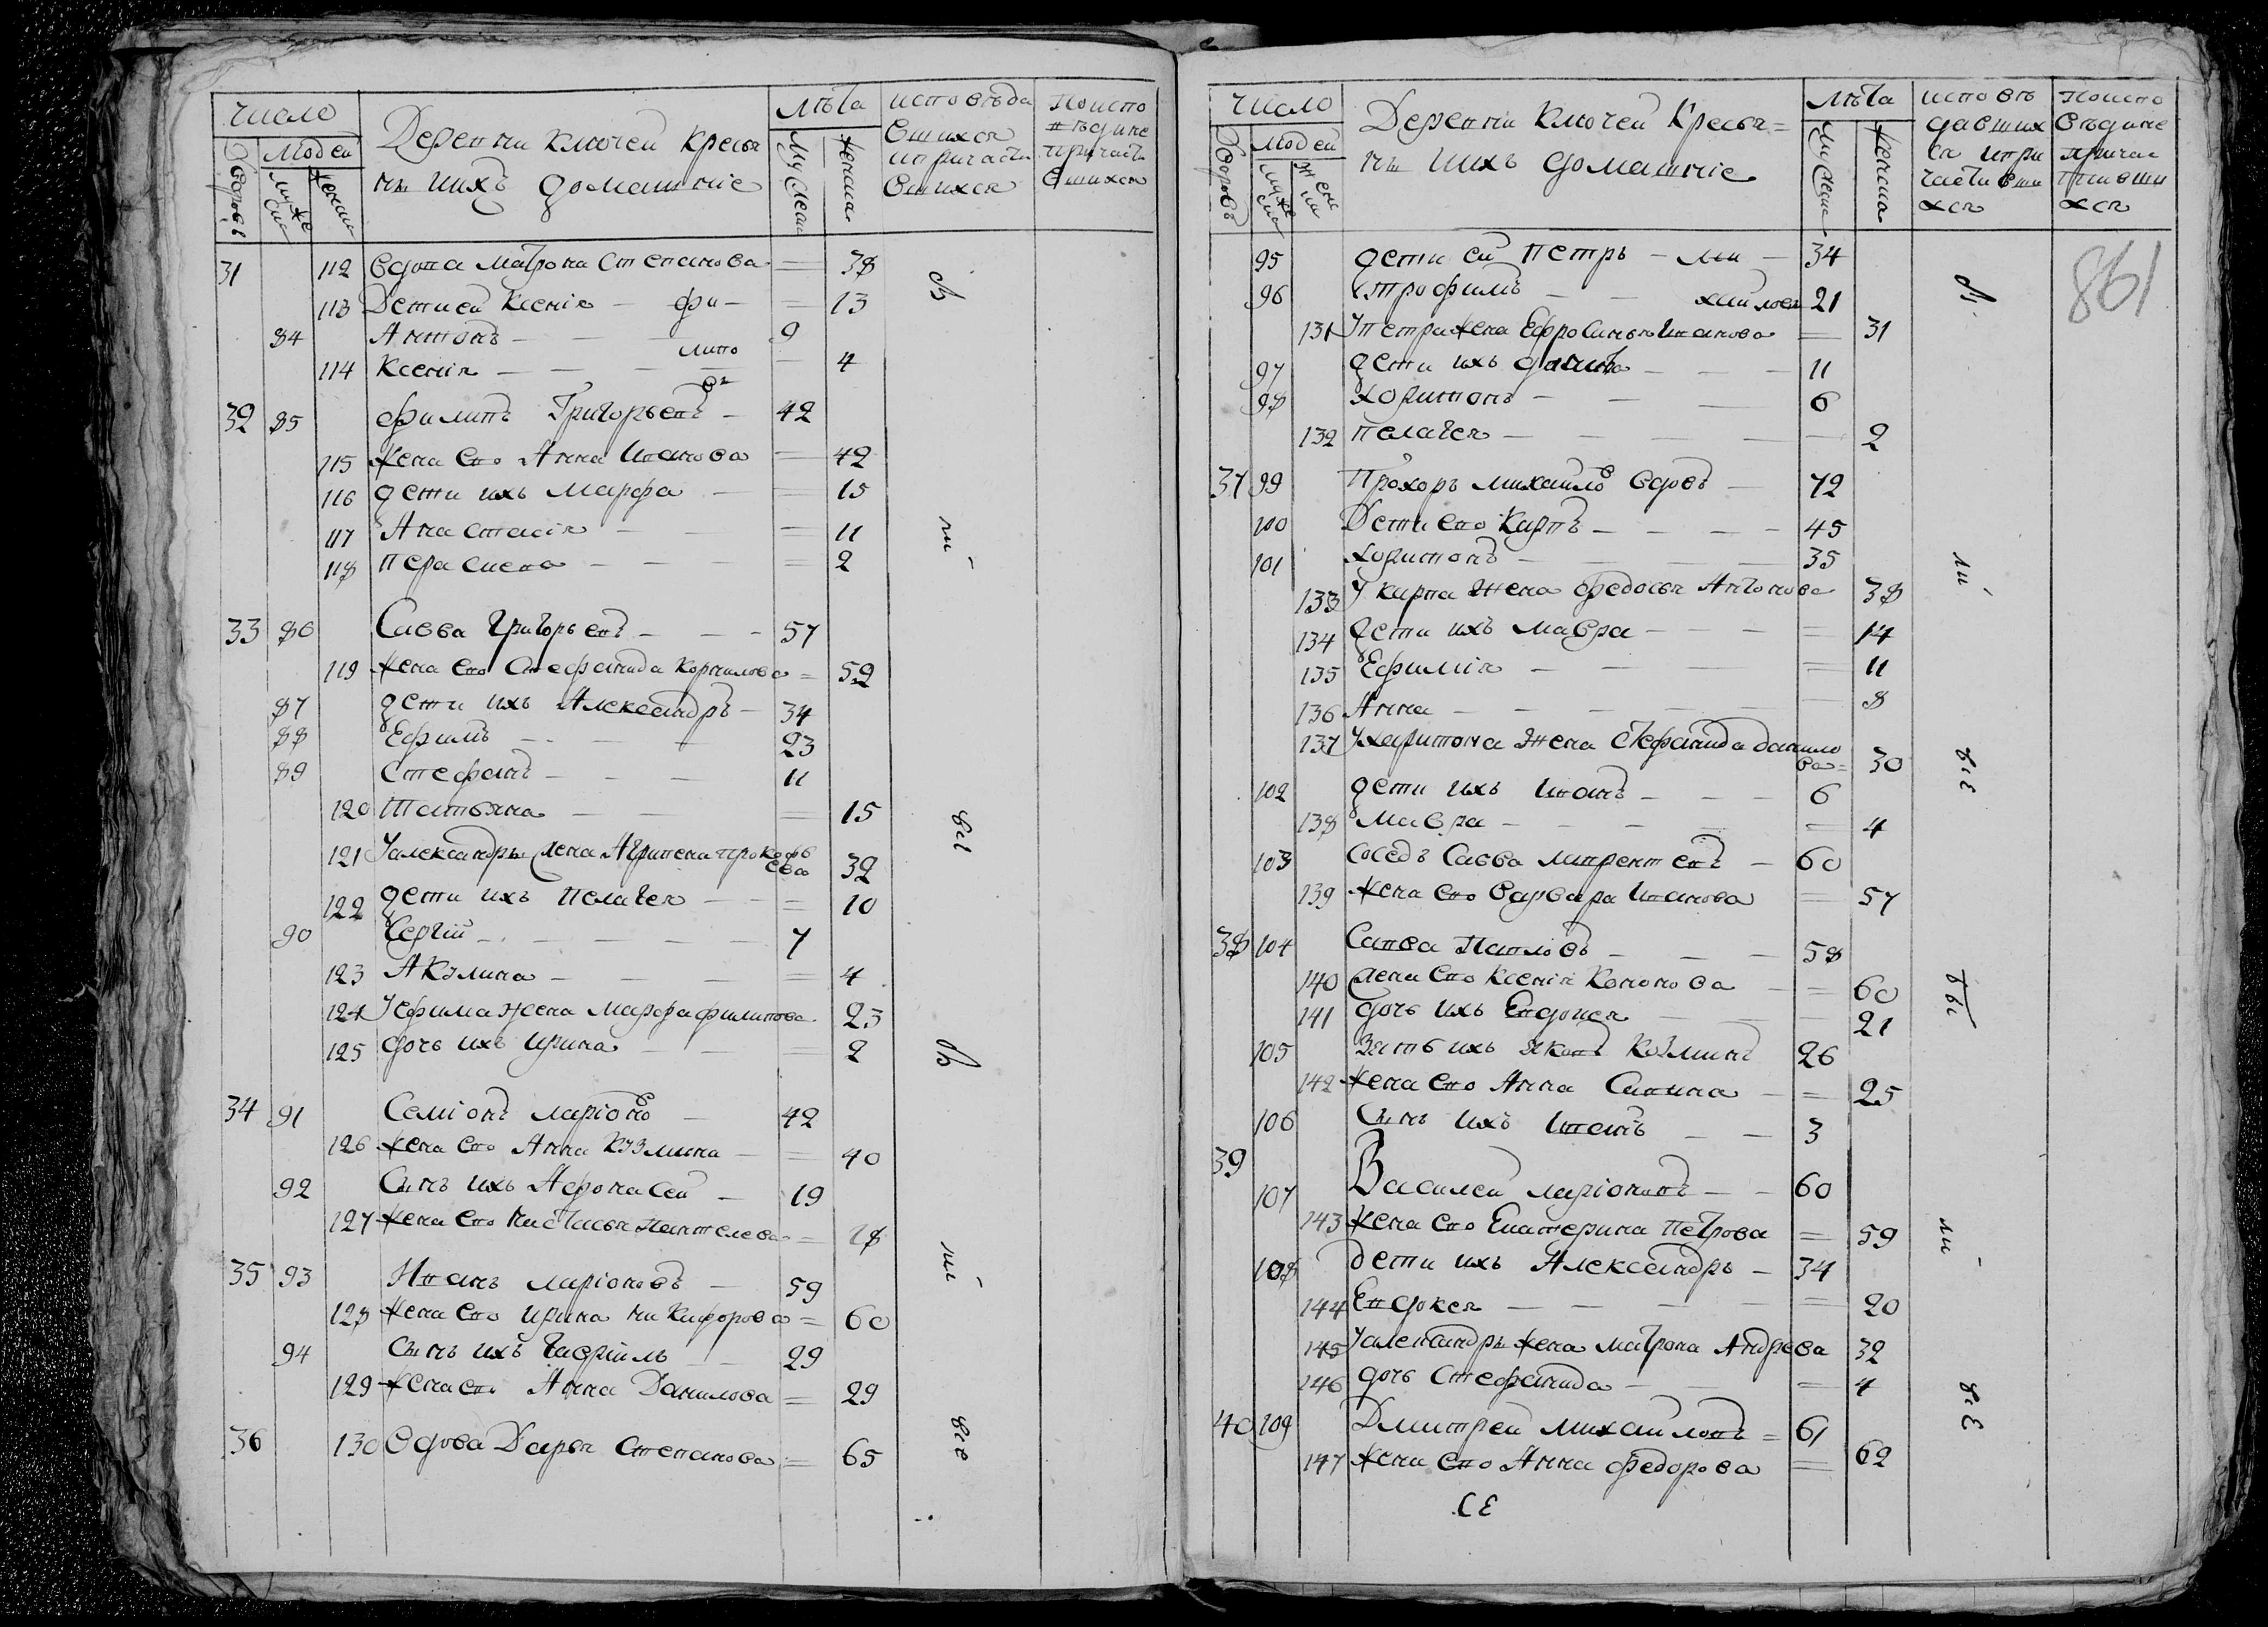 число
Деревни Ключей Крестья
нъ ихъ домашніе
лѣта
исповѣда
вшихся
и причасти
вшихся
По испо
вѣди не
причасти
вшихся
Дворовъ
Людей
мужеск
женска
мужеска
женска
31 112 вдова Матрона Степанова = 38
113 Дети ей Ксенія — фи — = 13
84 Антонъ — — 9
липо
114 Ксенія — — — — 4
въ
32 85 Филипъ Григорьевъ — 42
115 жена его Анна Иванова = 42
116 дети ихъ Марфа — = 15
117 Анастасія — — = 11
118 Парасиева — — — = 2
33 86 Савва Григорьевъ — — — 57
119 жена его Стефанида Корнилова = 52
87 дети ихъ Александръ — 34
88 Ефимъ — — — 23
89 Стефанъ — — — 11
120 Татьяна — — = 15
121 У александръ жена Агрипена Прокофь
ева 32
122 дети ихъ Пелагея — — = 10
90 Сергій — — — — 7
123 Акулина — — — = 4
124 У ефима жена Марфа Филипова 23
125 дочь ихъ Ирина — — = 2
34 91 Семіонъ Ларіоно в — 42
126 жена его Анна Кузмина — = 40
92 Сынъ ихъ Афонасей — 19
127 жена его Настасья Пантелева = 18
35 93 Иванъ Ларіоновъ — 59
128 жена его Ирина Никифорова = 60
94 Сынъ ихъ Гавріилъ — — 29
129 жена его Анна Данилова = 29
36 130 вдова Дарья Степанова = 65
число
Деревни Ключей Кресья=
нъ ихъ домашніе
лѣта
исповѣ
давших
ся и при
части вши
хся
По испо
вѣди не
причас
тивши
хся
Дворовъ
Людей
мужеска
женска
мужеска
женска
861
95 дети ей Петръ — ми — 34
96 Трофимъ — — хаиловы 21
131 У петра жена Ефросинья Иванова = 31
97 дети ихъ данило — — — 11
98 Харитонъ — — — 6
132 Пелагея — — — — — 2
37 99 Прохоръ Михаило в вдовъ — 72
100 Дети его Карпъ — — — — 45
101 Харитонъ — — — — 35
133 У карпа жена Федосья Антонова 38
134 дети ихъ Мавра — — — = 14
135 Ефимія — — — = 11
136 Анна — — — — — — 8
137 У харитона жена Стефанида данило
ва = 30
102 дети ихъ Иванъ — — — 6
138 Мавра — — — — = 4
103 Соседъ Савва Лаврентевъ — 60
139 жена его Варвара Иванова = 57
38 104 Савва Павловъ — — — 58
140 жена его Ксенія Кононова — = 60
141 дочь ихъ Евдокея — — — 21
105 Зять ихъ Яковъ Козминъ 26
142 жена его Анна Савина — = 25
106 Сынъ ихъ Иванъ — — 3
39
107 Василей Ларіоновъ — — 60
143 жена его Екатерина Петрова = 59
108 дети ихъ Александръ — 34
144 Евдокея — — — — = 20
145 У александръ жена Матрона Андрева 32
146 дочь Стефанида — — = 4
40 109 Дмитрей Михаиловъ = 61
147 жена его Анна Федорова = 62